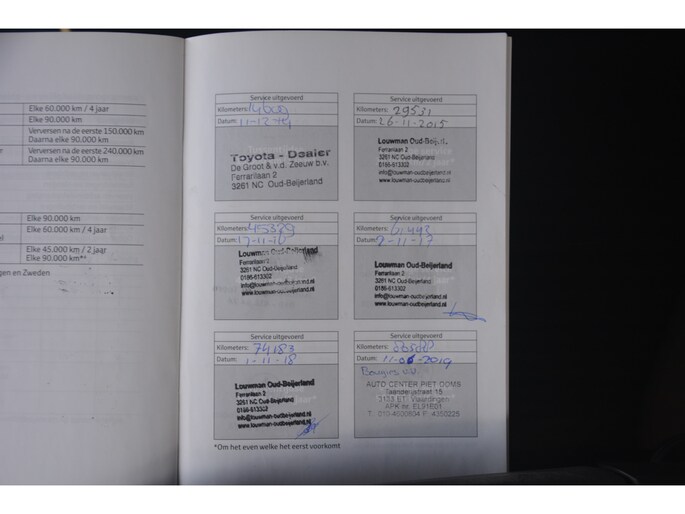 Elke 60.000 km / 4 jaar
Elke 90.000 km
Verversen na de eerste 150.000 km
Daarna elke 90.000 km
Verversen na de eerste 240.000 km
Daarna elke 90.000 km
Elke 90.000 km
Elke 60.000 km / 4 jaar
Elke 45.000 km / 2 jaar
Elke 90.000 km*⁴
gen en Zweden
Service uitgevoerd
Kilometers:
Datum: 11-12-14
Toyota - Dealer
De Groot & v.d. Zeeuw b.v.
Ferrarilaan 2
3261 NC Oud-Beijerland
Service uitgevoerd
Kilometers: 29531
Datum: 26-11-2015
Louwman Oud-Beijerl.
Ferrarilaan 2
3261 NC Oud-Beijerland
0186-613302
info@louwman-oudbeijerland.nl
www.louwman-oudbeijerland.nl
Service uitgevoerd
Kilometers: 45329
Datum: 17-11-16
Louwman Oud-Beijerland
Ferrarilaan 2
3261 NC Oud-Beijerland
0186-613302
info@louwman-oudbeijerland.nl
www.louwman-oudbeijerland.nl
Service uitgevoerd
Kilometers: 61442
Datum: 9-11-17
Louwman Oud-Beijerland
Ferrarilaan 2
3261 NC Oud-Beijerland
0186-613302
info@louwman-oudbeijerland.nl
www.louwman-oudbeijerland.nl
Service uitgevoerd
Kilometers: 74183
Datum: 1-11-18
Louwman Oud-Beijerland
Ferrarilaan 2
3261 NC Oud-Beijerland
0186-613302
info@louwman-oudbeijerland.nl
www.louwman-oudbeijerland.nl
Service uitgevoerd
Kilometers:
Datum: 11-06-2019
AUTO CENTER PIET OOMS
15
3133 ET Vlaardingen
APK nr. EL91E01
T. 010-4600834 F. 4350228
*Om het even welke het eerst voorkomt